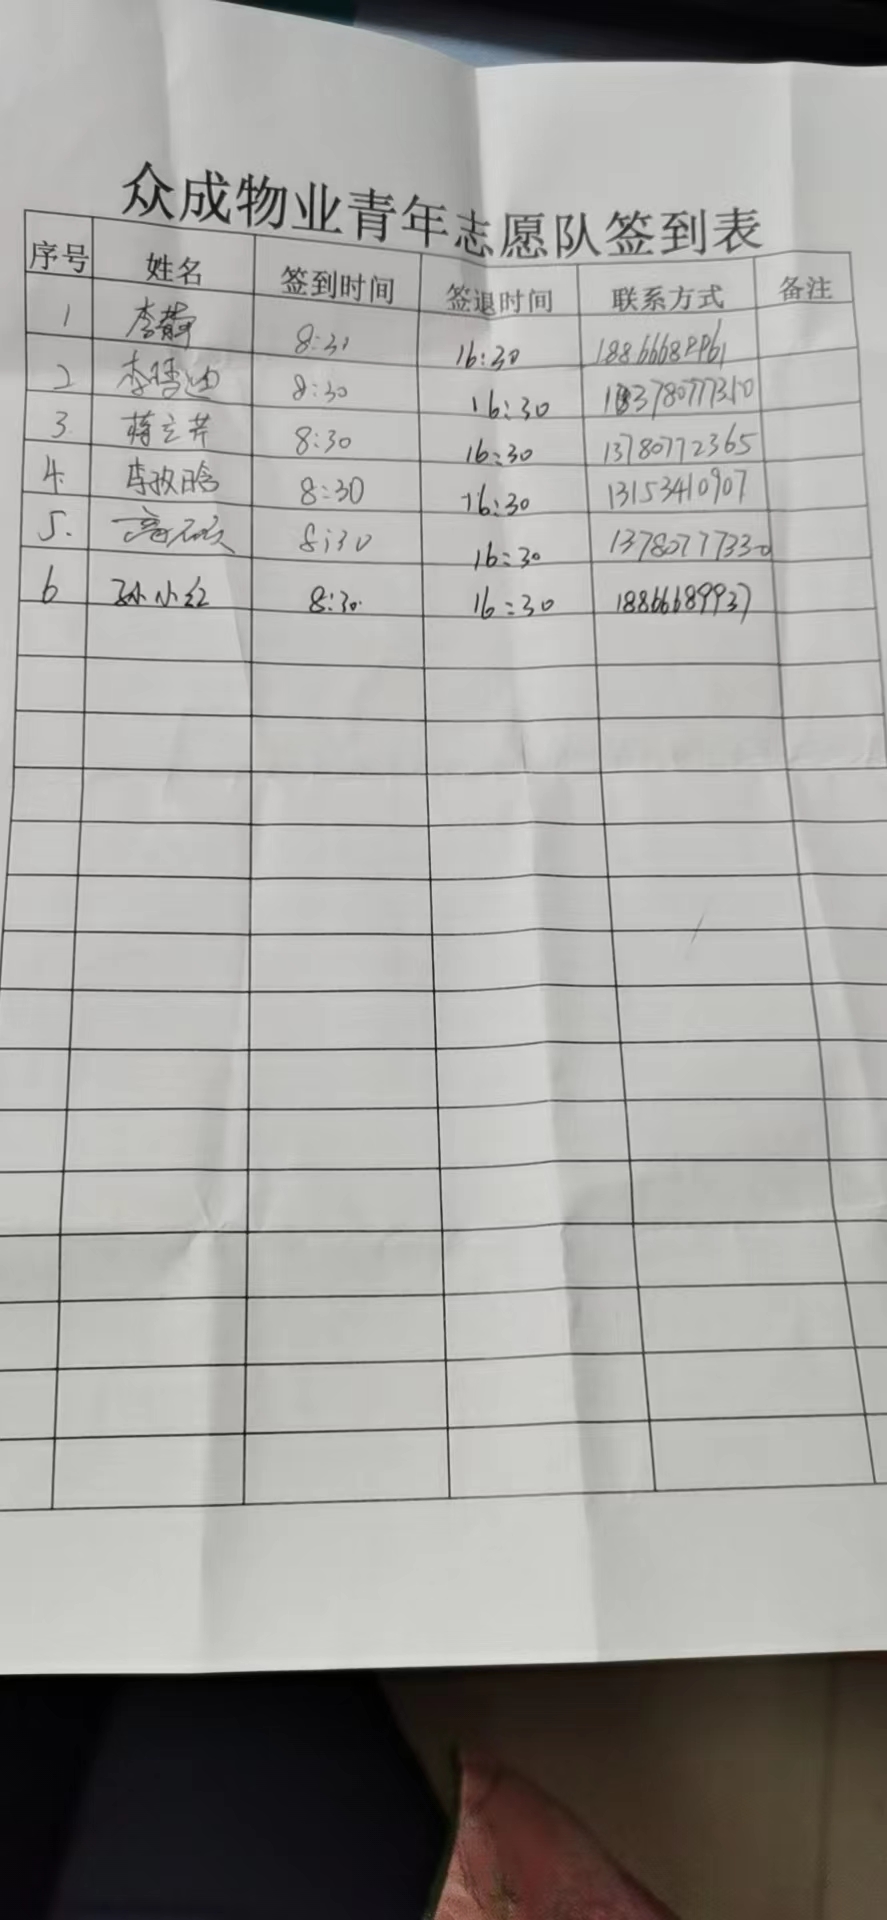 众成物业青年志愿队签到表
序号 姓名 签到时间 签退时间 联系方式 备注
1 李静 8:30 16:30
2 李 8:30 16:30
3. 蒋立芹 8:30 16:30 13780772365
4. 李 晗 8:30 16:30 13153410907
5. 高 8:30 16:30 13780777330
6 孙小红 8:30. 16:30 18866689937